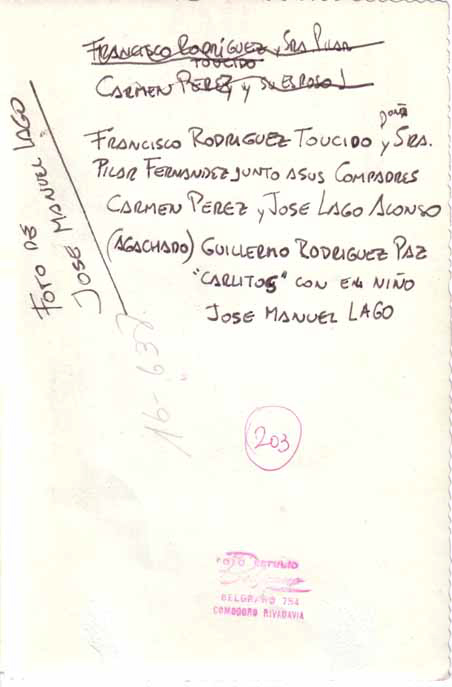 FRANCISCO RODRÍGUEZ y SRA PILAR
TOUCIDO
CARMEN PEREZ y SU ESPOSO J
FRANCISCO RODRIGUEZ TOUCIDO y DOÑA SRA.
PILAR FERNANDEZ JUNTO A SUS COMPADRES
CARMEN PEREZ y JOSE LAGO ALONSO
(AGACHADO) GUILLERMO RODRIGUEZ PAZ
"CARLITOS" CON EL NIÑO
JOSE MANUEL LAGO
FOTO DE
JOSE MANUEL LAGO
16-632
203
FOTO ESTUDIO
BELGRANO 754
COMODORO RIVADAVIA